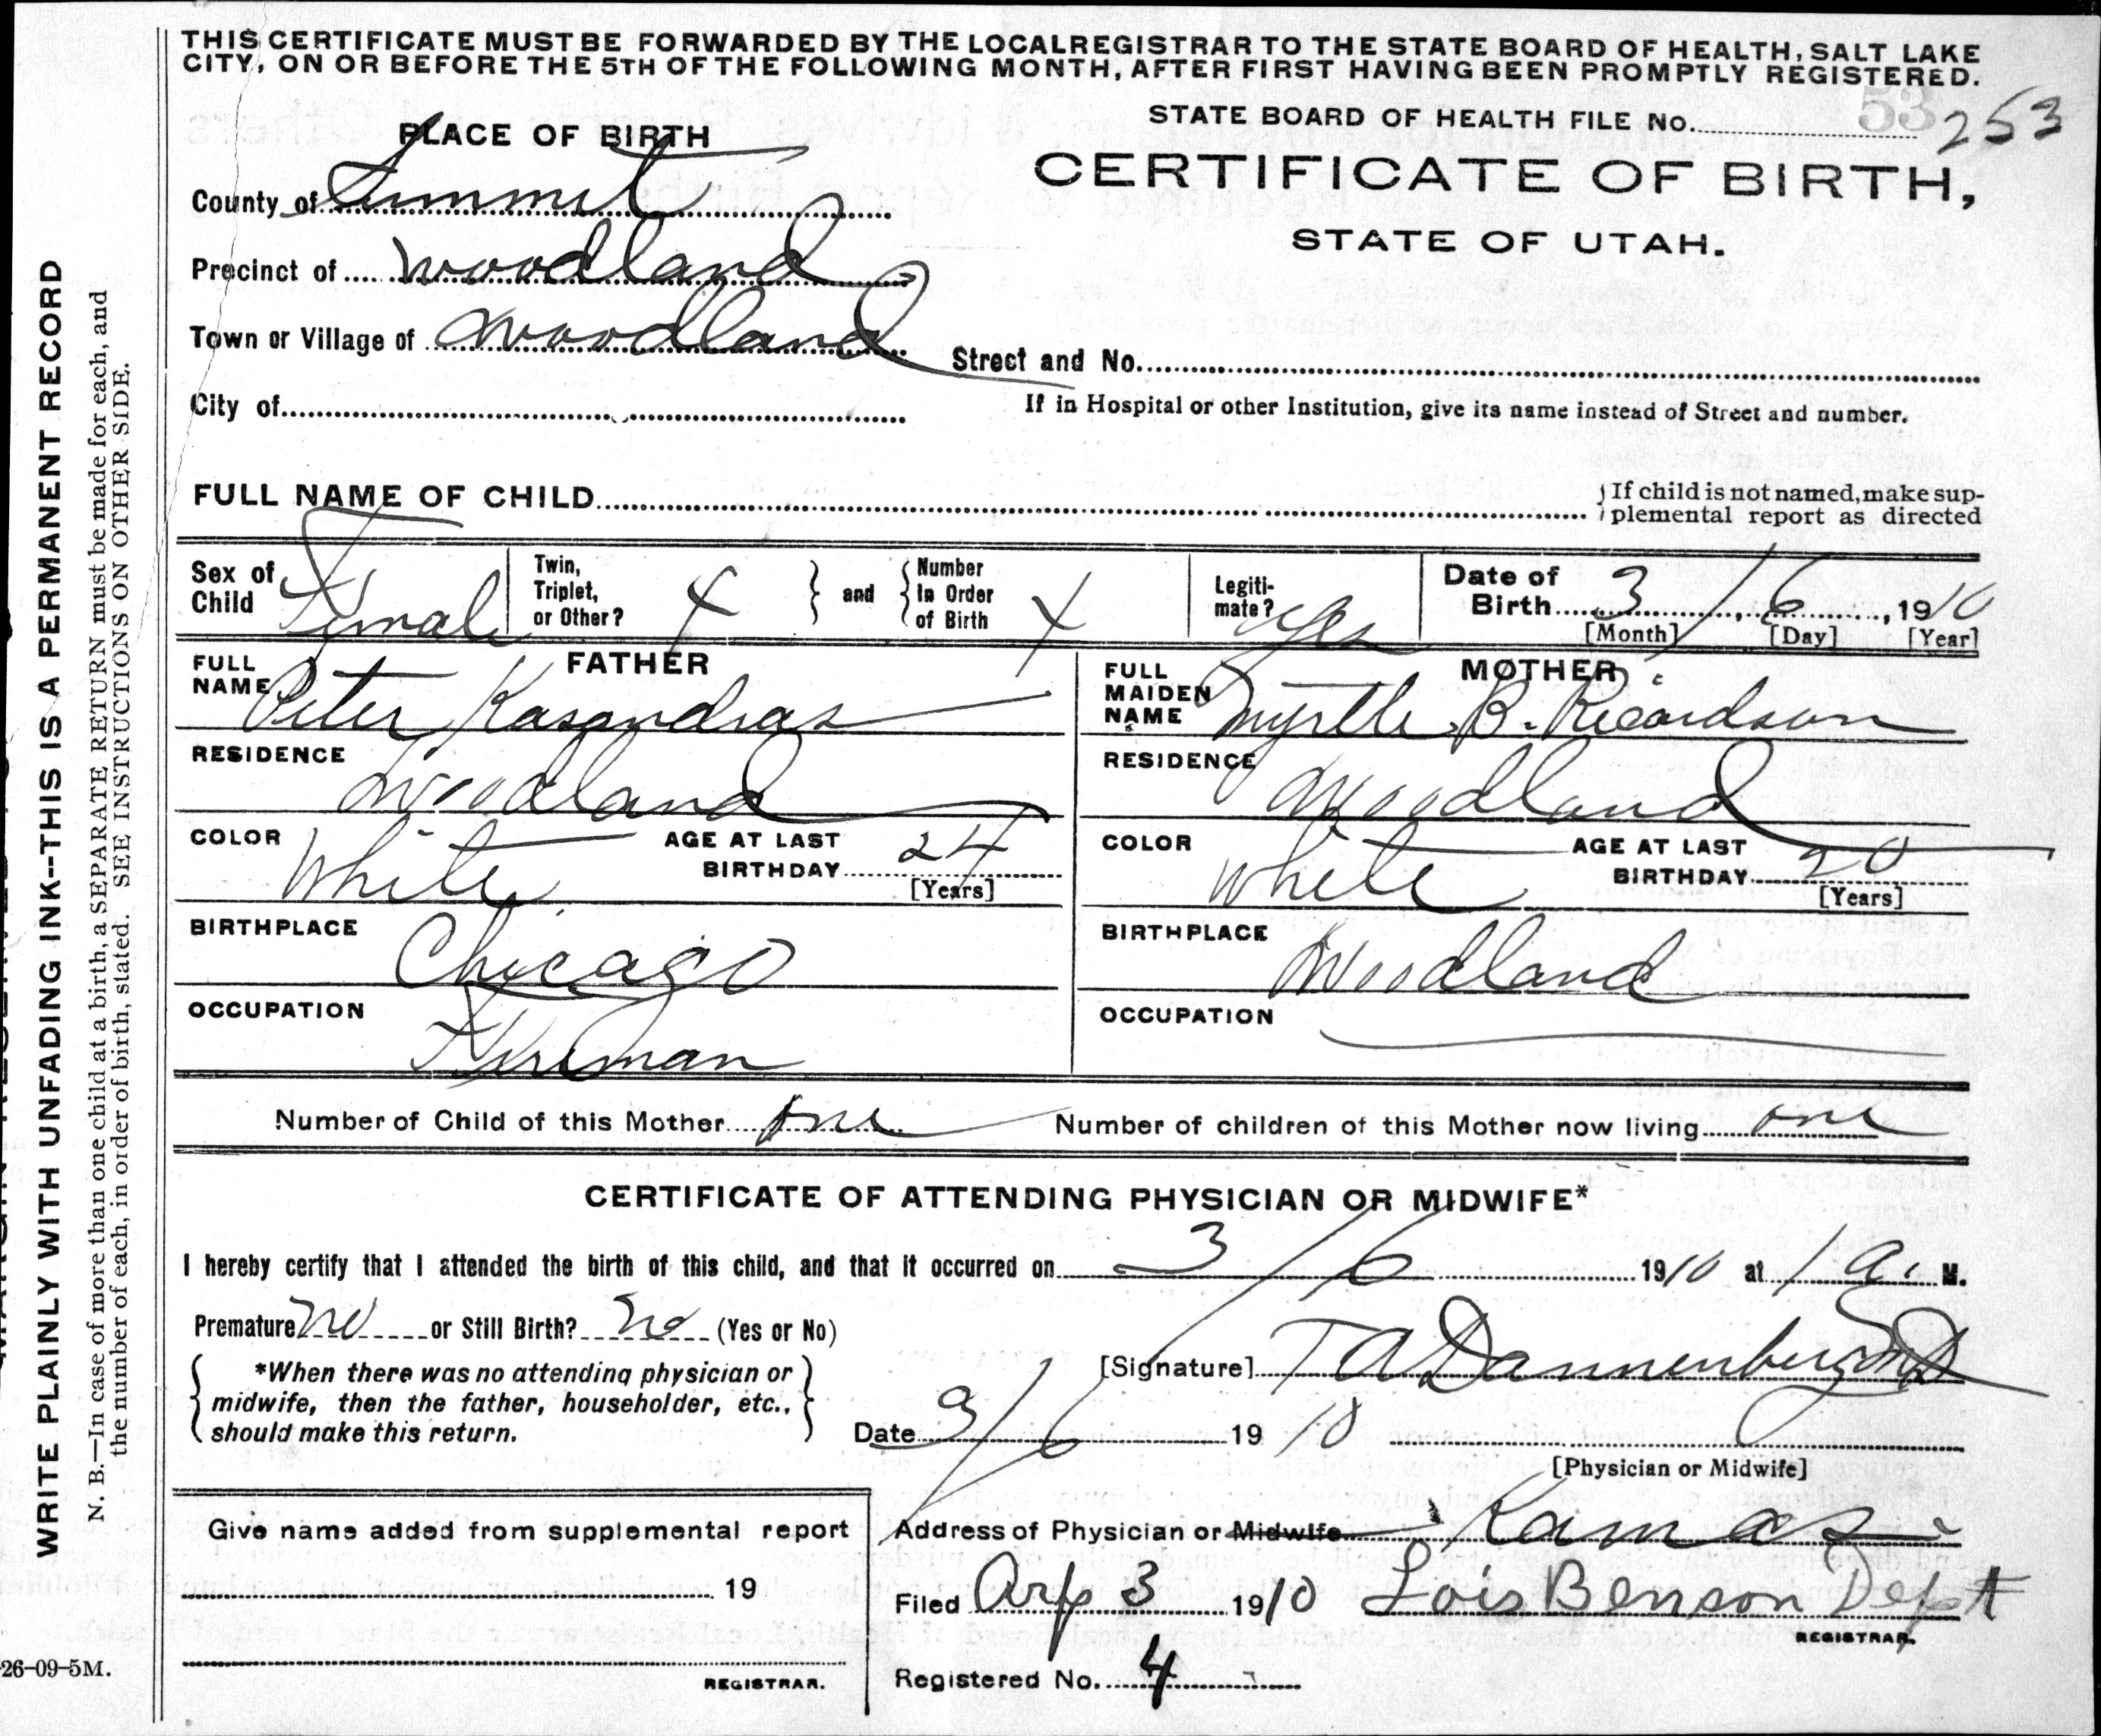 THIS CERTIFICATE MUST BE FORWARDED BY THE LOCAL REGISTRAR TO THE STATE BOARD OF HEALTH, SALT LAKE
CITY, ON OR BEFORE THE 5TH OF THE FOLLOWING MONTH, AFTER FIRST HAVING BEEN PROMPTLY REGISTERED.
STATE BOARD OF HEALTH FILE No. 53 253
PLACE OF BIRTH
CERTIFICATE OF BIRTH,
STATE OF UTAH.
County of Summit
Precinct of Woodland
Town or Village of Woodland
Street and No.
City of
If in Hospital or other Institution, give its name instead of Street and number.
FULL NAME OF CHILD
If child is not named, make sup-
plemental report as directed
Sex of Child Female
Twin, Triplet, or Other? X and Number In Order of Birth X
Legiti-mate? yes
Date of Birth 3 / 6, 1910
[Month] [Day] [Year]
FATHER
FULL NAME Peter Kasandras
RESIDENCE Woodland
COLOR White AGE AT LAST BIRTHDAY 24
[Years]
BIRTHPLACE Chicago
OCCUPATION Fireman
MOTHER
FULL MAIDEN NAME Myrtle B. Ricardson
RESIDENCE Woodland
COLOR white AGE AT LAST BIRTHDAY 20
[Years]
BIRTHPLACE Woodland
OCCUPATION
Number of Child of this Mother one Number of children of this Mother now living one
CERTIFICATE OF ATTENDING PHYSICIAN OR MIDWIFE*
I hereby certify that I attended the birth of this child, and that it occurred on 3 / 6 1910 at 1 a. M.
Premature no or Still Birth? no (Yes or No)
*When there was no attending physician or
midwife, then the father, householder, etc.,
should make this return.
[Signature] T A Dannenberg MD
Date 3/6 1910
[Physician or Midwife]
Give name added from supplemental report
19
REGISTRAR.
Address of Physician or Midwife Kamas
Filed Arp 3 1910 Lois Benson Dept
REGISTRAR.
Registered No. 4
26-09-5M.
WRITE PLAINLY WITH UNFADING INK--THIS IS A PERMANENT RECORD
N. B.—In case of more than one child at a birth, a SEPARATE RETURN must be made for each, and
the number of each, in order of birth, stated. SEE INSTRUCTIONS ON OTHER SIDE.